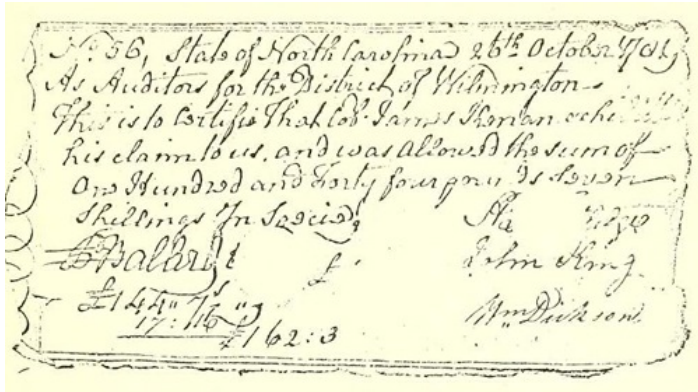 No. 56, State of North Carolina 26th October 1781
As Auditors for the District of Wilmington
This is to Certifie That Col. James Kenan
his claim to us, and was allowed the sum of
One Hundred and Forty four pounds Seven
Shillings In Specie
John King
£144"7s
17:16
£162:3
Wm Dickson